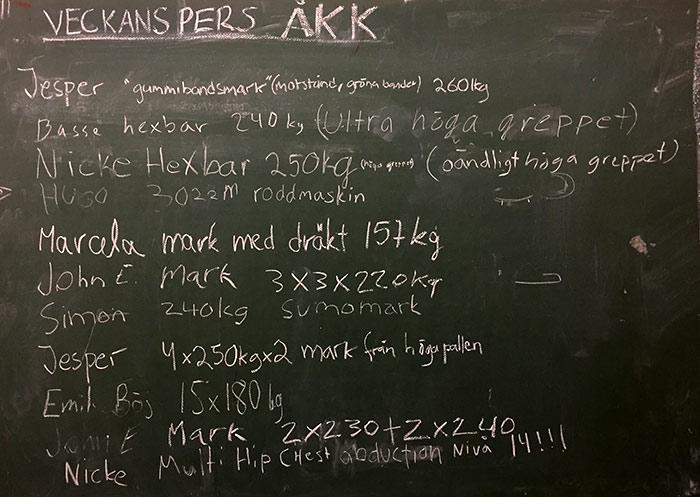 VECKANS PERS ÅKK
Jesper "gummibandsmark" (motstånd, gröna bandet) 260kg
Basse hexbar 240 kg (Ultra höga greppet)
Nicke Hexbar 250kg (höga greppet) (oändligt höga greppet)
HUGO 3022M roddmaskin
Marcela mark med dräkt 157kg
John E. Mark 3x3x220kg
Simon 240kg sumomark
Jesper 4x250kgx2 mark från höga pallen
Emil Böj 15x180kg
John E Mark 2x230+2x240
Nicke Multi Hip CHest abduction Nivå 14!!!